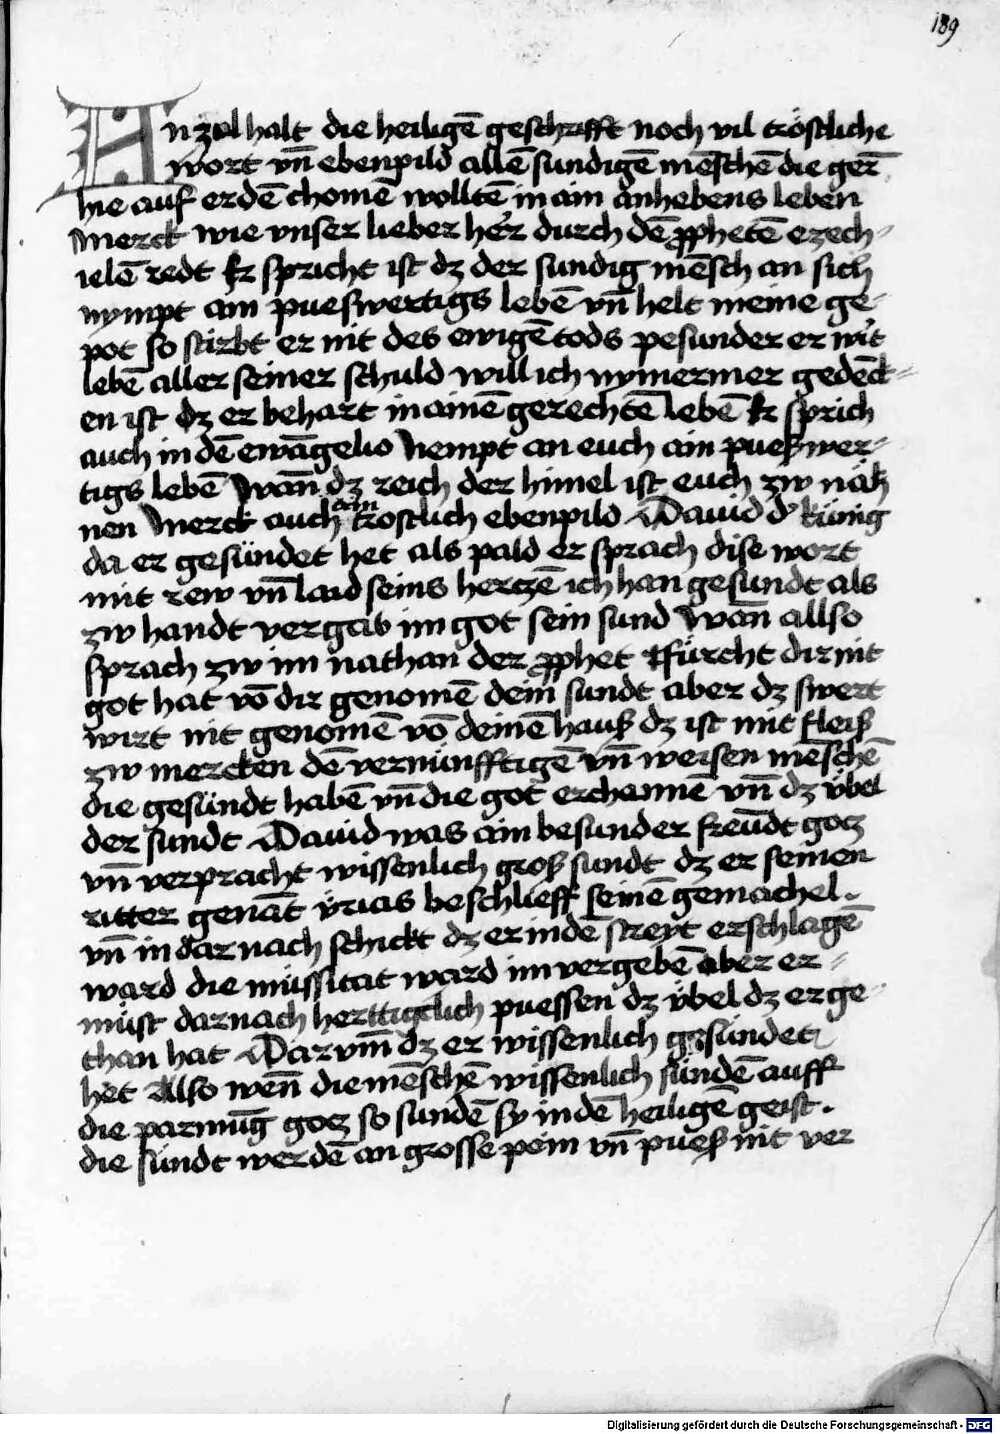 189
An zal halt die heiligē geschrifft noch vil tröstliche
wort vn̄ ebenpild allē sundigē mēschē die ger̄
hie auf erdē chomē wolltē in ain anhebens leben
Merck wie vnser lieber her̄ durch dē ꝓphetē ezech-
ielē redt Er spricht ist dz der sundig mēsch an sich
nympt ain pueswertigs lebē vn̄ helt meine ge-
pot so stirbt er nit des ewigē tods pesunder er wirt
lebē aller seiner schuld will ich nymermer gedēck-
en ist dz er behart in ainē gerechtē lebē Er sprich
auch in dē ewāgelio Nempt an euch ain puesswer-
tigs lebē Wan̄ dz reich der himel ist euch zw näh
nen Merck auch ain trostlich ebenpild Dauid d' künig
da er gesündet het als pald er sprach dise wort
mit rew vn̄ laid seins hertzē ich han gesundt als
zw handt vergab im got sein sund Wan̄ allso
sprach zw im nathan der ꝓphet Fürcht dir nit
got hat vō dir genomē dein sundt aber dz swert
wirt nit genomē vō deinē hauß dz ist mit fleiß
zw mercken dē vernünfftigē vn̄ weisen mēschē
die gesündt habē vn̄ die got erchannē vn̄ dz übel
der sundt Dauid was ain besunder freūdt gotz
vn̄ verpracht wissenlich groß sundt dz er seinen
ritter genāt ÿrias beschlieff seinē gemachel.
vn̄ in dar nach schickt dz er in dē streyt erschlagē
ward die müssitat ward im vergebē aber er-
müst darnach herttigclich puessen dz übel dz er ge-
than hat Darvm̄ dz er wissenlich gesündet
het Allso wen̄ die mēschē wissenlich sündē auff
die parmūg gotz so sundē sy in dē heiligē geist.
die sündt werdē an grosse pein vn̄ pueß nit ver
Digitalisierung gefördert durch die Deutsche Forschungsgemeinschaft - DFG